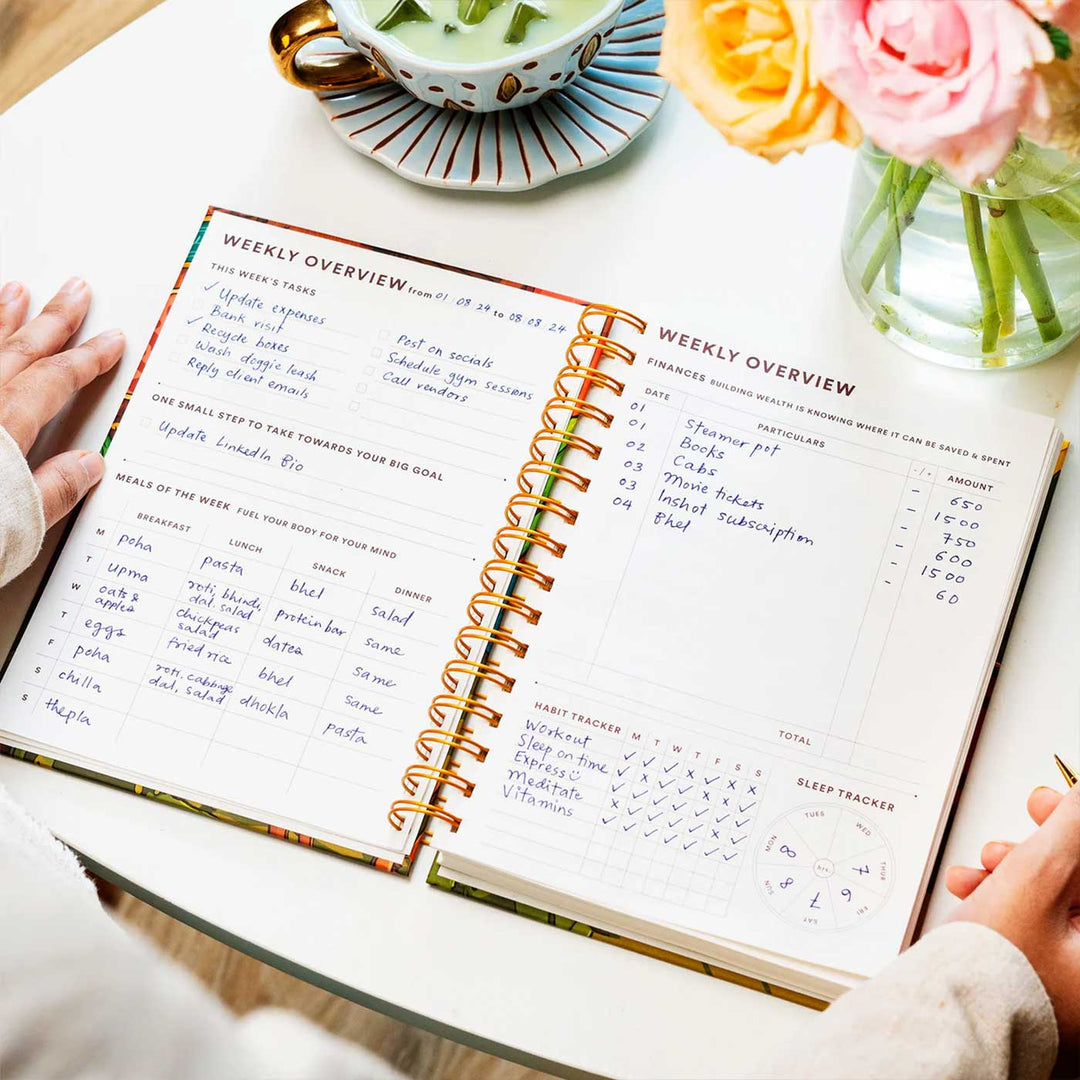 WEEKLY OVERVIEW from 01 08 24 to 08 08 24
THIS WEEK'S TASKS
✓ Update expenses
Bank visit
✓ Recycle boxes
Wash doggie leash
Reply client emails
Post on socials
Schedule gym sessions
Call vendors
ONE SMALL STEP TO TAKE TOWARDS YOUR BIG GOAL
Update LinkedIn Bio
MEALS OF THE WEEK FUEL YOUR BODY FOR YOUR MIND
BREAKFAST LUNCH SNACK DINNER
M poha pasta bhel salad
T upma roti, bhindi, dal, salad protein bar same
W oats & apples chickpeas salad dates same
T eggs fried rice bhel same
F poha roti, cabbage dal, salad dhokla pasta
S chilla
S thepla
WEEKLY OVERVIEW
FINANCES BUILDING WEALTH IS KNOWING WHERE IT CAN BE SAVED & SPENT
DATE PARTICULARS -/+ AMOUNT
01 Steamer pot - 650
01 Books - 1500
02 Cabs - 750
03 Movie tickets - 600
03 Inshot subscription - 1500
04 Bhel - 60
TOTAL
HABIT TRACKER M T W T F S S
Workout
Sleep on time
Express
Meditate
Vitamins
SLEEP TRACKER
MON 8
TUES
WED
THUR 7
FRI 6
SAT 7
SUN 8
hrs.